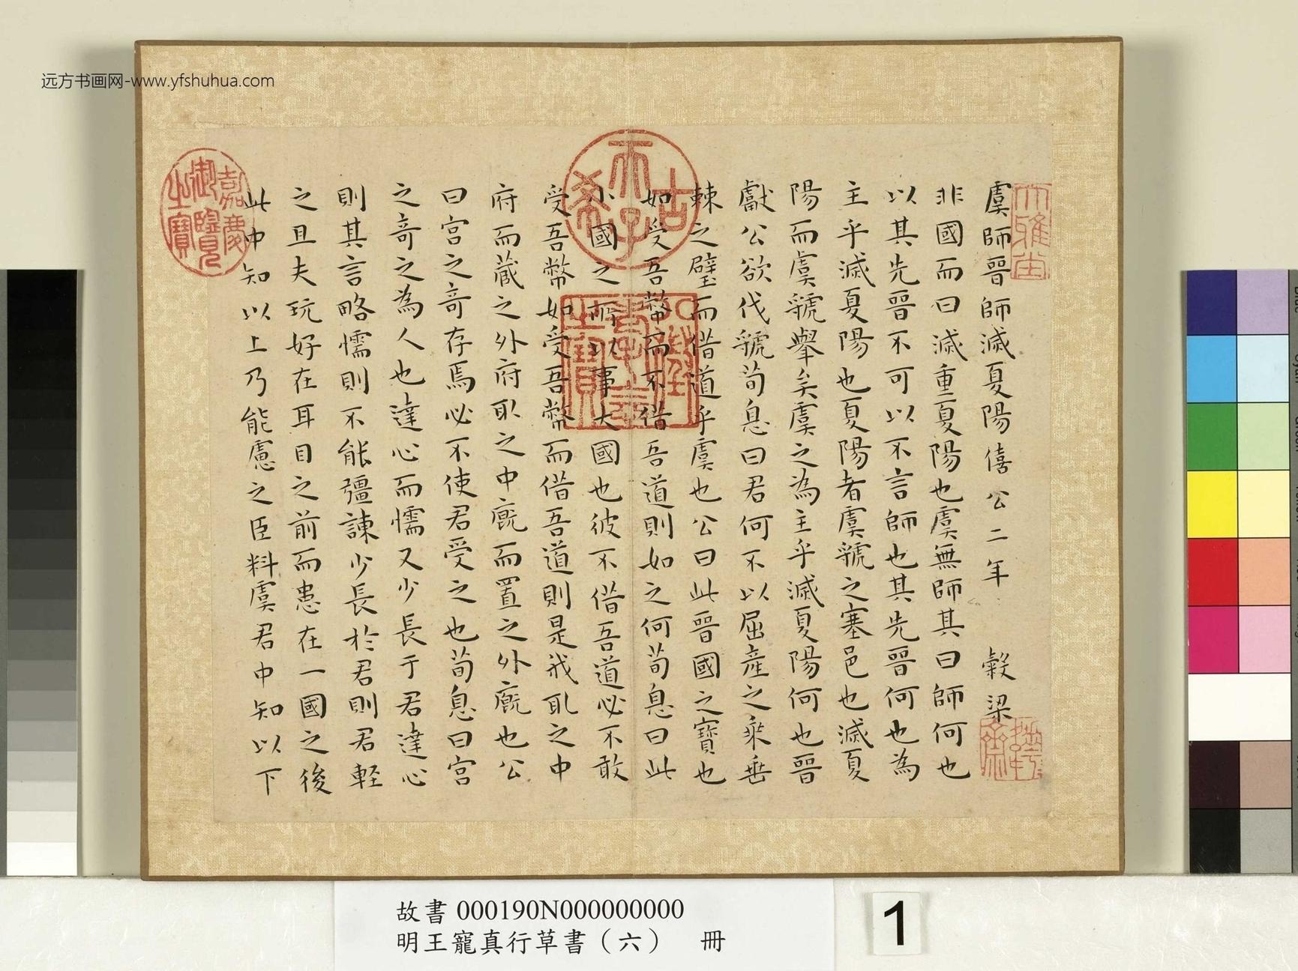 远方书画网-www.yfshuhua.com
虞師晉師滅夏陽僖公二年 穀梁
非國而曰滅重夏陽也虞無師其曰師何也
以其先晉不可以不言師也其先晉何也為
主乎滅夏陽也夏陽者虞虢之塞邑也滅夏
陽而虞虢舉矣虞之為主乎滅夏陽何也晉
獻公欲伐虢荀息曰君何不以屈產之乘垂
棘之璧而借道乎虞也公曰此晉國之寶也
如受吾幣而不借吾道則如之何荀息曰此
小國之所以事大國也彼不借吾道必不敢
受吾幣如受吾幣而借吾道則是我取之中
府而藏之外府取之中廐而置之外廐也公
曰宮之奇存焉必不使君受之也荀息曰宮
之奇之為人也達心而懦又少長于君達心
則其言略懦則不能彊諫少長於君則君輕
之且夫玩好在耳目之前而患在一國之後
此中知以上乃能慮之臣料虞君中知以下
大雅堂
古希天子
乾隆御覽之寶
嘉慶御覽之寶
故書 000190N000000000
明王寵真行草書（六） 冊
1